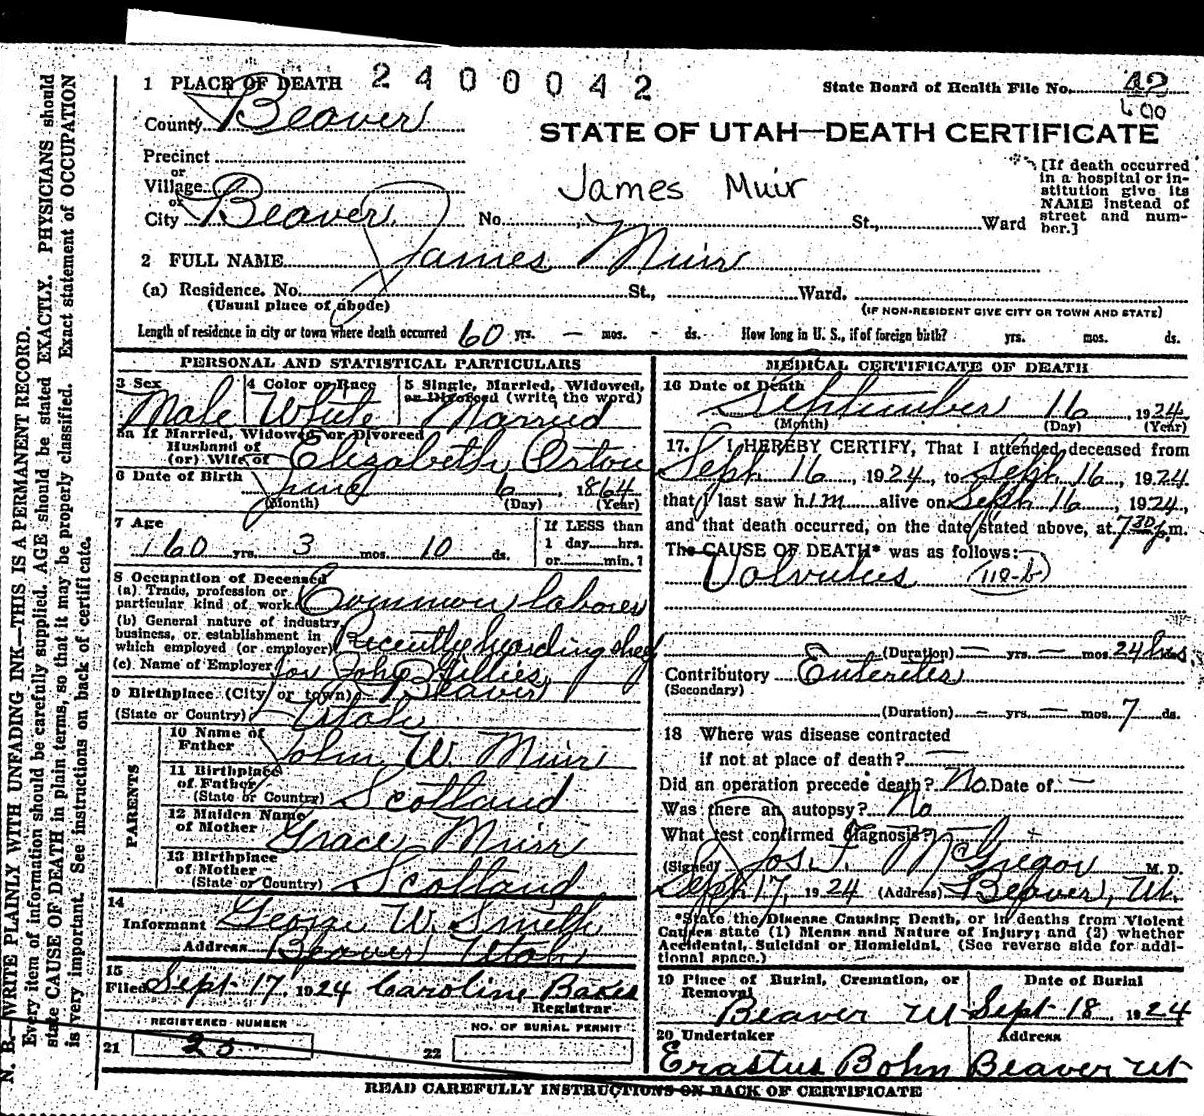 N. B.—WRITE PLAINLY WITH UNFADING INK—THIS IS A PERMANENT RECORD.
Every item of information should be carefully supplied. AGE should be stated EXACTLY. PHYSICIANS should
state CAUSE OF DEATH in plain terms, so that it may be properly classified. Exact statement of OCCUPATION
is very important. See instructions on back of certificate.
1 PLACE OF DEATH 2400042
State Board of Health File No. 42
600
County Beaver
STATE OF UTAH—DEATH CERTIFICATE
Precinct
or
Village
or
City Beaver No. St., Ward
[If death occurred
in a hospital or in-
stitution give its
NAME instead of
street and num-
ber.]
James Muir
2 FULL NAME James Muir
(a) Residence. No. St., Ward.
(Usual place of abode) (IF NON-RESIDENT GIVE CITY OR TOWN AND STATE)
Length of residence in city or town where death occurred 60 yrs. — mos. - ds. How long in U. S., if of foreign birth? yrs. mos. ds.
PERSONAL AND STATISTICAL PARTICULARS
3 Sex 4 Color or Race 5 Single, Married, Widowed,
or Divorced (write the word)
Male White Married
5a If Married, Widowed or Divorced
Husband of
(or) Wife of Elizabeth Orton
6 Date of Birth June 6, 1864
(Month) (Day) (Year)
7 Age If LESS than
60 yrs. 3 mos. 10 ds. 1 day hrs.
or min.?
8 Occupation of Deceased
(a) Trade, profession or
particular kind of work. Common laborer
(b) General nature of industry,
business, or establishment in
which employed (or employer) Recently herding sheep
(c) Name of Employer for John Gillies
9 Birthplace (City or town) Beaver
(State or Country) Utah
PARENTS
10 Name of
Father John W. Muir
11 Birthplace
of Father
(State or Country) Scotland
12 Maiden Name
of Mother Grace Muir
13 Birthplace
of Mother
(State or Country) Scotland
14
Informant George W. Smith
Address Beaver Utah
15
Filed Sept 17, 1924 Caroline Baker
Registrar
REGISTERED NUMBER NO. OF BURIAL PERMIT
21 25 22
MEDICAL CERTIFICATE OF DEATH
16 Date of Death
September 16, 1924
(Month) (Day) (Year)
17. I HEREBY CERTIFY, That I attended deceased from
Sept 16, 1924, to Sept 16, 1924
that I last saw him alive on Sept 16, 1924,
and that death occurred, on the date stated above, at 7 30 p.m.
The CAUSE OF DEATH* was as follows:
Volvulus (118-b)
(Duration) — yrs. — mos. 24 hrs.
Contributory Enteritis
(Secondary)
(Duration) — yrs. — mos. 7 ds.
18 Where was disease contracted
if not at place of death? —
Did an operation precede death? No. Date of —
Was there an autopsy? No
What test confirmed diagnosis?
(Signed) Jos. T. McGregor M. D.
Sept 17, 1924 (Address) Beaver, Ut.
*State the Disease Causing Death, or in deaths from Violent
Causes state (1) Means and Nature of Injury; and (2) whether
Accidental, Suicidal or Homicidal. (See reverse side for addi-
tional space.)
19 Place of Burial, Cremation, or Date of Burial
Removal
Beaver Ut Sept 18 1924
20 Undertaker Address
Erastus Bohn Beaver Ut
READ CAREFULLY INSTRUCTIONS ON BACK OF CERTIFICATE